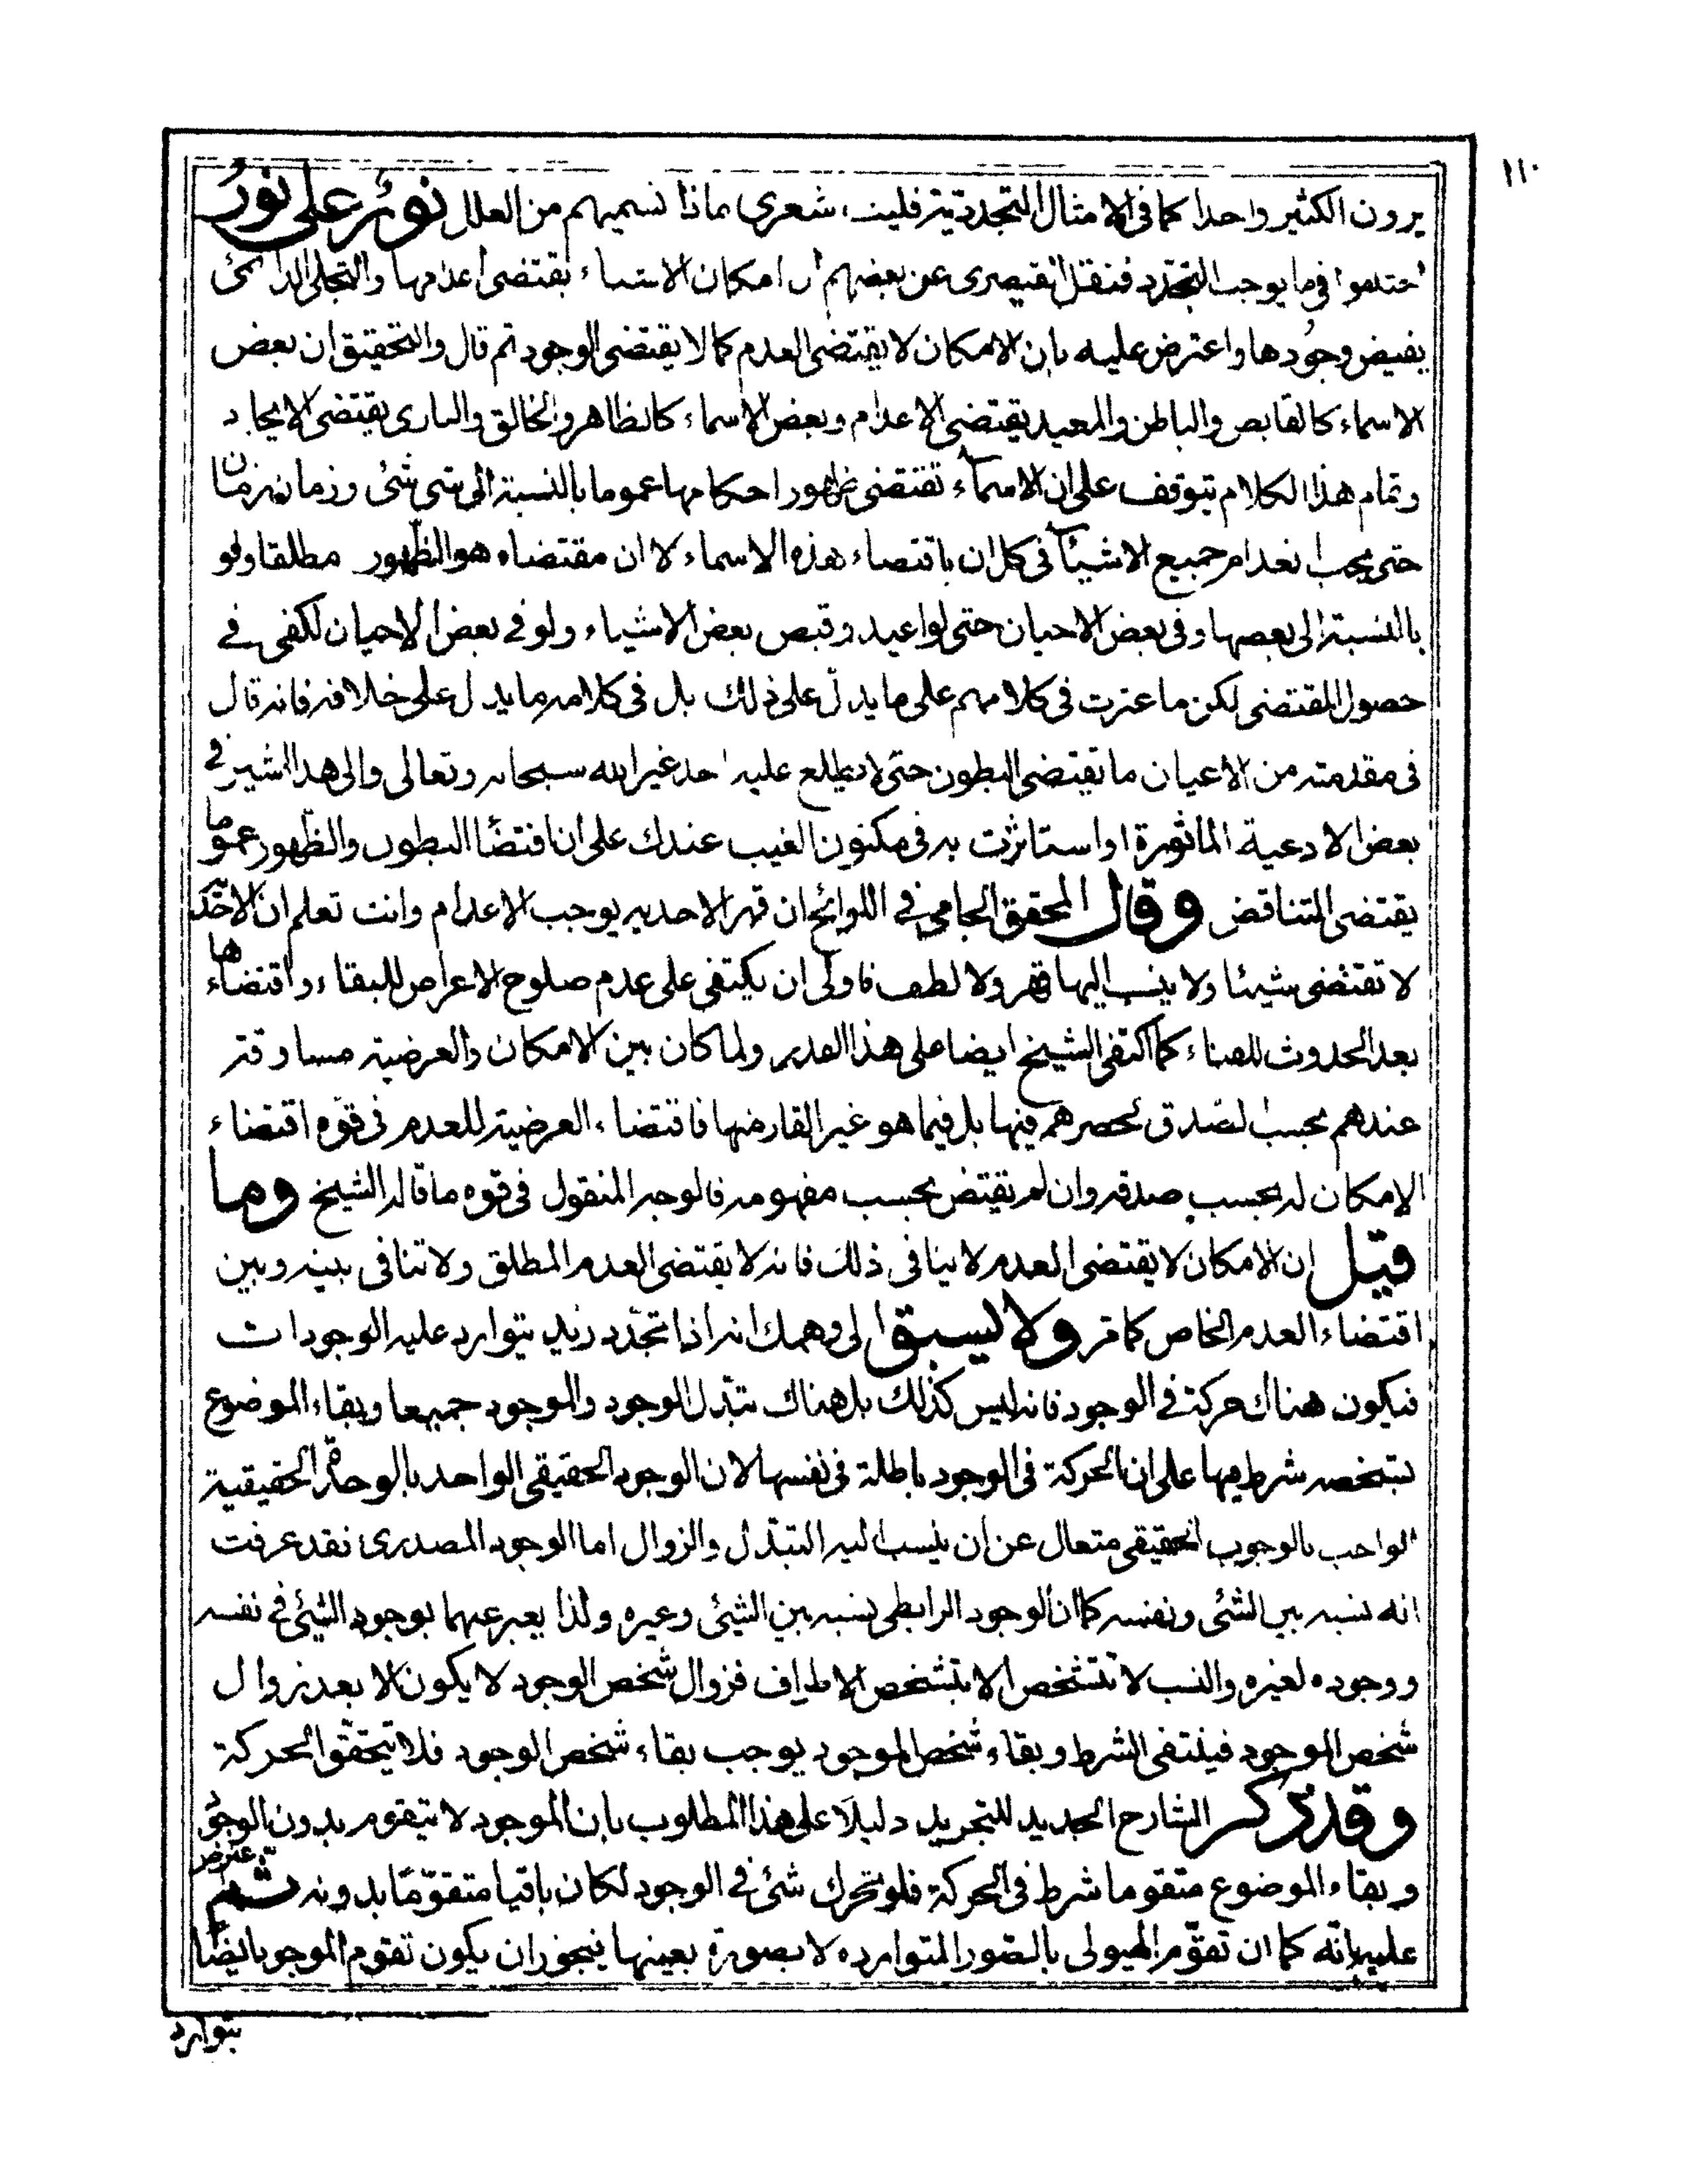 ١١٠
يرون الكثير واحدا كما فى الامثال المتجددية فليت شعرى بماذا نسميهم من العلل نور على نور
اختلفوا فيما يوجب التجدد فنقل القيصرى عن بعضهم ان امكان الاشياء يقتضى اعدامها والتجلى الدائمى
يفيض وجودها واعترض عليه بان الامكان لا يقتضى العدم كما لا يقتضى الوجود ثم قال والتحقيق ان بعض
الاسماء كالقابض والباطن والمعيد يقتضى الاعدام وبعض الاسماء كالظاهر والخالق والبارى يقتضى الايجاد
وتمام هذا الكلام يتوقف على ان الاسماء تقتضى ظهور احكامها عموما بالنسبة الى شى شئى وزمان زمان
حتى يجب انعدام جميع الاشياء فى كل ان باقتضاء هذه الاسماء لا ان مقتضاه هو الظهور مطلقا ولو
بالنسبة الى بعضها وفى بعض الاحيان حتى لو اعيد وقبض بعض الاشياء ولو فے بعض الاحيان لكفى فے
حصول المقتضى لكن ما عثرت فى كلامهم على ما يدل على ذلك بل فى كلامه ما يدل على خلافه فانه قال
فى مقدمته من الاعيان ما يقتضى البطون حتى لا يطلع عليه احد غير الله سبحانه وتعالى والى هذا اشير فے
بعض الادعية الماثورة او استاثرت به فى مكنون الغيب عندك على ان اقتضا البطون والظهور عموما
يقتضى التناقض وقال المحقق الجامى فے اللوائح ان قهر الاحديه يوجب الاعدام وانت تعلم ان الاحدية
لا تقتضى شيئا ولا ينسب اليها قهر ولا لطف فاولى ان يكتفى على عدم صلوح الاعراض للبقاء واقتضاءها
بعد الحدوث للفناء كما اكتفى الشيخ ايضا على هذا القدر ولما كان بين الامكان والعرضية مساوقة
عندهم بحسب الصدق بحصرهم فيها بل فيما هو غير القار منها فاقتضاء العرضية للعدم فى قوه اقتضاء
الامكان له بحسب صدقه وان لم يقتض بحسب مفهومه فالوجه المنقول فى قوه ما قاله الشيخ وما
قيل ان الامكان لا يقتضى العدم لا ينافى ذلك فانه لا يقتضى العدم المطلق ولا تنافى بينه وبين
اقتضاء العدم الخاص كما مر ولا يسبق الى وهمك انه اذا تجدد زيد يتوارد عليه الوجودات
فيكون هناك حركة فے الوجود فانه ليس كذلك بل هناك تبدل الوجود والموجود جميعا وبقاء الموضوع
بتشخصه شرط فيها على ان الحركة فى الوجود باطلة فى نفسها لان الوجود الحقيقى الواحد بالوحدة الحقيقية
الواجب بالوجوب الحقيقى متعال عن ان ينسب اليه التبدل والزوال اما الوجود المصدرى فقد عرفت
انه نسبه بين الشئى ونفسه كما ان الوجود الرابطى نسبه بين الشيئى وغيره ولذا يعبر عنهما بوجود الشيئى فے نفسه
ووجوده لغيره والنسب لا تتشخص الا بتشخص الاطراف فزوال شخص الوجود لا يكون الا بعد زوال
شخص الموجود فينتفى الشرط وبقاء شخص الموجود يوجب بقاء شخص الوجود فلا يتحقق الحركة
وقد ذكر الشارح الجديد للتجريد دليلا على هذا المطلوب بان الموجود لا يتقوم بدون الوجود
وبقاء الموضوع متقوما شرط فى الحركة فلو تحرك شئى فے الوجود لكان باقيا متقوما بدونه ثم اعترض
عليه بانه كما ان تقوم الهيولى بالصور المتوارده لا بصورة بعينها فيجوز ان يكون تقوم الموجود ايضا
بتوارد